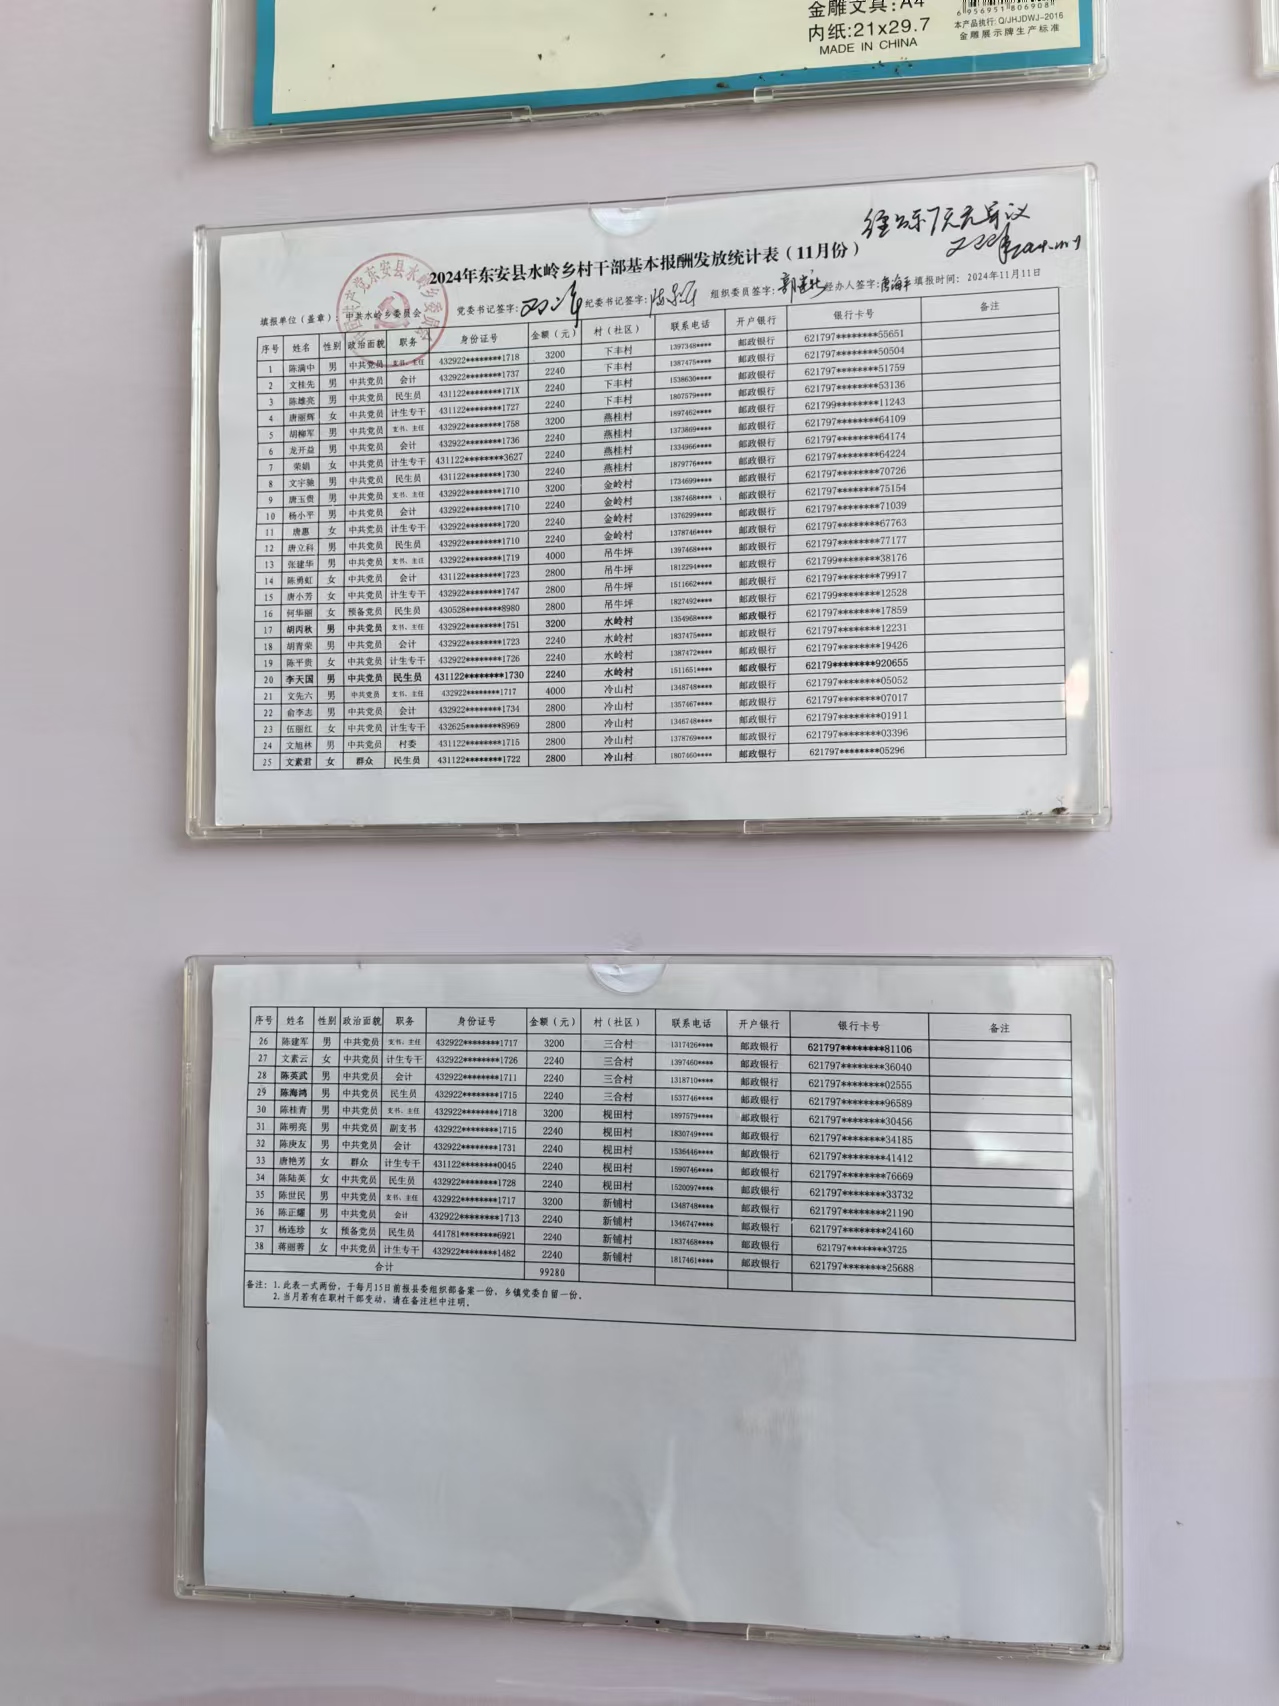 金雕文具:A4
内纸:21x29.7
MADE IN CHINA
6 956951 806908
本产品执行: Q/JHJDWJ-2016
金雕展示牌生产标准
经公示7天无异议
2024年东安县水岭乡村干部基本报酬发放统计表（11月份）
填报单位（盖章）：中共水岭乡委员会 党委书记签字: 纪委书记签字: 组织委员签字: 经办人签字: 填报时间：2024年11月11日
序号 姓名 性别 政治面貌 职务 身份证号 金额（元） 村（社区） 联系电话 开户银行 银行卡号 备注
1 陈满中 男 中共党员 支书、主任 432922********1718 3200 下丰村 1397348**** 邮政银行 621797********55651
2 文桂先 男 中共党员 会计 432922********1737 2240 下丰村 1387475**** 邮政银行 621797********50504
3 陈雄亮 男 中共党员 民生员 431122********171X 2240 下丰村 1538630**** 邮政银行 621797********51759
4 唐丽辉 女 中共党员 计生专干 431122********1727 2240 下丰村 1807579**** 邮政银行 621797********53136
5 胡柳军 男 中共党员 支书、主任 432922********1758 3200 燕桂村 1897462**** 邮政银行 621799********11243
6 龙开益 男 中共党员 会计 432922********1736 2240 燕桂村 1373869**** 邮政银行 621797********64109
7 荣娟 女 中共党员 计生专干 431122********3627 2240 燕桂村 1334966**** 邮政银行 621797********64174
8 文宇驰 男 中共党员 民生员 431122********1730 2240 燕桂村 1879776**** 邮政银行 621797********64224
9 唐玉贵 男 中共党员 支书、主任 432922********1710 3200 金岭村 1734699**** 邮政银行 621797********70726
10 杨小平 男 中共党员 会计 432922********1710 2240 金岭村 1387468**** 邮政银行 621797********75154
11 唐惠 女 中共党员 计生专干 432922********1720 2240 金岭村 1376299**** 邮政银行 621797********71039
12 唐立科 男 中共党员 民生员 432922********1710 2240 金岭村 1378746**** 邮政银行 621797********67763
13 张建华 男 中共党员 支书、主任 432922********1719 4000 吊牛坪 1397468**** 邮政银行 621797********77177
14 陈勇虹 女 中共党员 会计 431122********1723 2800 吊牛坪 1812294**** 邮政银行 621799********38176
15 唐小芳 女 中共党员 计生专干 432922********1747 2800 吊牛坪 1511662**** 邮政银行 621797********79917
16 何华丽 女 预备党员 民生员 430528********8980 2800 吊牛坪 1827492**** 邮政银行 621799********12528
17 胡丙秋 男 中共党员 支书、主任 432922********1751 3200 水岭村 1354968**** 邮政银行 621797********17859
18 胡青荣 男 中共党员 会计 432922********1723 2240 水岭村 1837475**** 邮政银行 621797********12231
19 陈平贵 女 中共党员 计生专干 432922********1726 2240 水岭村 1387472**** 邮政银行 621797********19426
20 李天国 男 中共党员 民生员 431122********1730 2240 水岭村 1511651**** 邮政银行 62179********920655
21 文先六 男 中共党员 支书、主任 432922********1717 4000 冷山村 1348748**** 邮政银行 621797********05052
22 俞李志 男 中共党员 会计 432922********1734 2800 冷山村 1357467**** 邮政银行 621797********07017
23 伍丽红 女 中共党员 计生专干 432625********8969 2800 冷山村 1346748**** 邮政银行 621797********01911
24 文旭林 男 中共党员 村委 431122********1715 2800 冷山村 1378769**** 邮政银行 621797********03396
25 文素君 女 群众 民生员 431122********1722 2800 冷山村 1807460**** 邮政银行 621797********05296
序号 姓名 性别 政治面貌 职务 身份证号 金额（元） 村（社区） 联系电话 开户银行 银行卡号 备注
26 陈建军 男 中共党员 支书、主任 432922********1717 3200 三合村 1317426**** 邮政银行 621797********81106
27 文素云 女 中共党员 计生专干 432922********1726 2240 三合村 1397460**** 邮政银行 621797********36040
28 陈英武 男 中共党员 会计 432922********1711 2240 三合村 1318710**** 邮政银行 621797********02555
29 陈海鸿 男 中共党员 民生员 432922********1715 2240 三合村 1537746**** 邮政银行 621797********96589
30 陈桂青 男 中共党员 支书、主任 432922********1718 3200 枧田村 1897579**** 邮政银行 621797********30456
31 陈明亮 男 中共党员 副支书 432922********1715 2240 枧田村 1830749**** 邮政银行 621797********34185
32 陈庚友 男 中共党员 会计 432922********1731 2240 枧田村 1536446**** 邮政银行 621797********41412
33 唐艳芳 女 群众 计生专干 431122********0045 2240 枧田村 1590746**** 邮政银行 621797********76669
34 陈陆英 女 中共党员 民生员 432922********1728 2240 枧田村 1520097**** 邮政银行 621797********33732
35 陈世民 男 中共党员 支书、主任 432922********1717 3200 新铺村 1348748**** 邮政银行 621797********21190
36 陈正耀 男 中共党员 会计 432922********1713 2240 新铺村 1346747**** 邮政银行 621797********24160
37 杨连珍 女 预备党员 民生员 441781********6921 2240 新铺村 1837468**** 邮政银行 621797********3725
38 蒋丽蓉 女 中共党员 计生专干 432922********1482 2240 新铺村 1817461**** 邮政银行 621797********25688
合计 99280
备注：1.此表一式两份，于每月15日前报县委组织部备案一份，乡镇党委自留一份。
2.当月若有在职村干部变动，请在备注栏中注明。